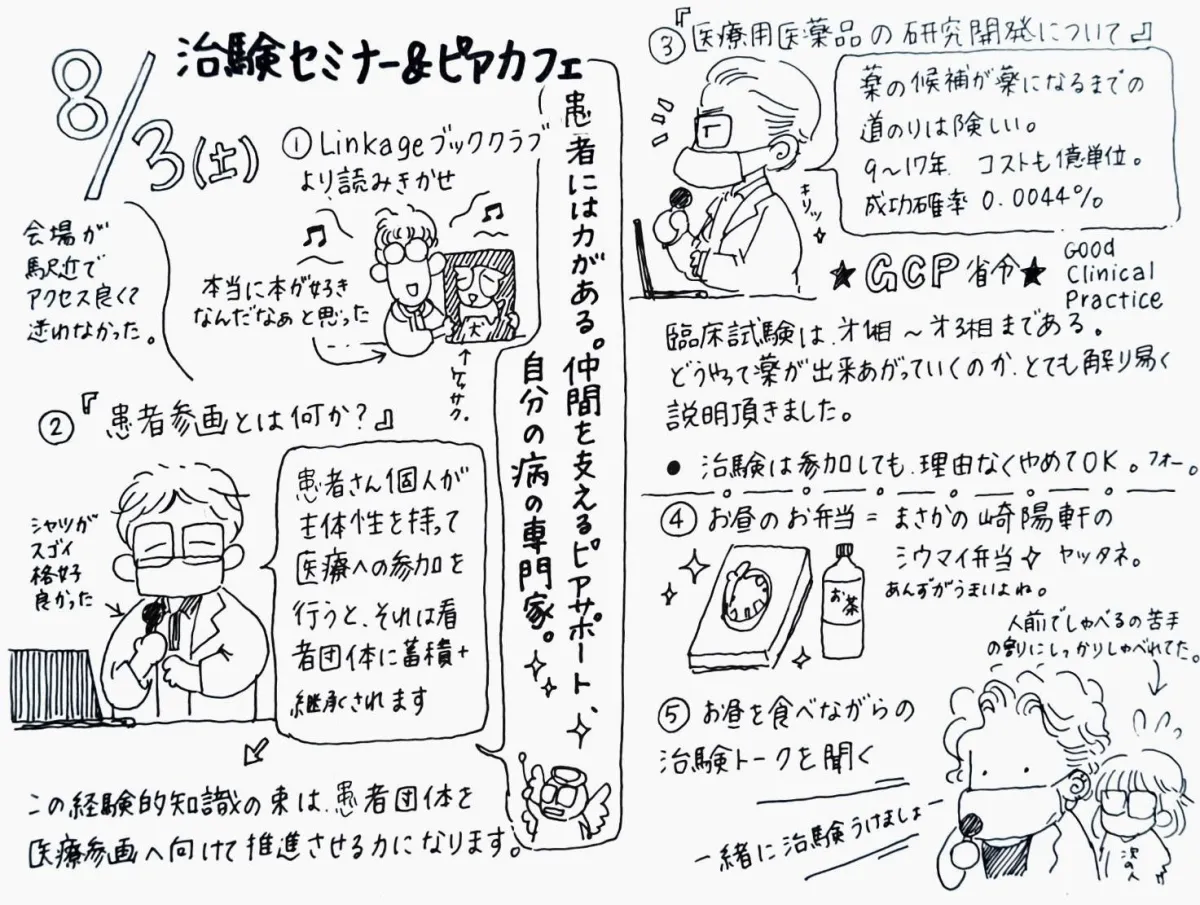 8/3(土)
治験セミナー&ピアカフェ
会場が
駅近で
アクセス良くて
迷わなかった。
① Linkageブッククラブ
より読みきかせ
本当に本が好き
なんだなぁと思った
犬
ケッサク。
②『患者参画とは何か?』
シャツが
スゴイ
格好
良かった
患者さん個人が
主体性を持って
医療への参加を
行うと、それは看
者団体に蓄積+
継承されます
この経験的知識の束は、患者団体を
医療参画へ向けて推進させる力になります。
患者には力がある。仲間を支えるピアサポート、
自分の病の専門家。
③『医療用医薬品の研究開発について』
薬の候補が薬になるまでの
道のりは険しい。
9〜17年 コストも億単位。
成功確率 0.0044%
キリッ
★GCP省令★
Good
Clinical
Practice
臨床試験は、才1相〜才3相まである。
どうやって薬が出来あがっていくのか、とても解り易く
説明頂きました。
● 治験は参加しても、理由なくやめてOK。フォー。
④ お昼のお弁当=まさかの崎陽軒の
シウマイ弁当 ヤッタネ。
あんずがうまいよね。
お茶
人前でしゃべるの苦手
の割にしっかりしゃべれてた。
⑤ お昼を食べながらの
治験トークを聞く
一緒に治験うけましょー
次の人